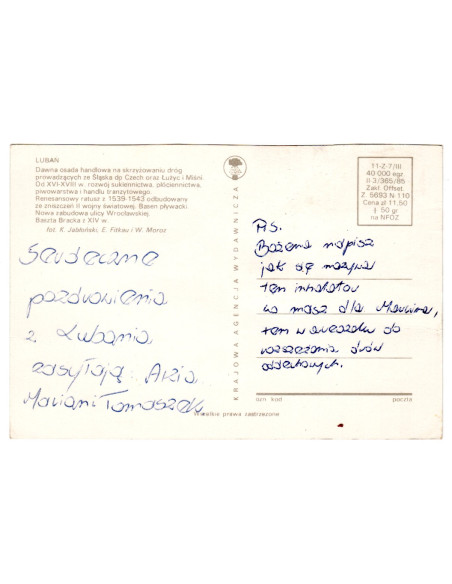 LUBAŃ
Dawna osada handlowa na skrzyżowaniu dróg
prowadzących ze Śląska do Czech oraz Łużyc i Miśni.
Od XVI-XVIII w. rozwój sukiennictwa, płóciennictwa,
piwowarstwa i handlu tranzytowego.
Renesansowy ratusz z 1539-1543 odbudowany
ze zniszczeń II wojny światowej. Basen pływacki.
Nowa zabudowa ulicy Wrocławskiej.
Baszta Bracka z XIV w.
fot. K. Jabłoński, E. Fitkau i W. Moroz
Serdeczne
pozdrowienia
z Lubania
zasyłają
Marian i Tomaszek
KRAJOWA AGENCJA WYDAWNICZA
11-Z-7/III
40 000 egz
3/365/85
Zakł. Offset.
Z. 5693 N 110
Cena zł 11,50
+ 50 gr
na NFOZ
P.S.
Bożena napisz
jak się nazywa
ten inhalator
co masz dla
ten w
rozszerzania dróg
oddechowych.
kod poczta
Wszelkie prawa zastrzeżone